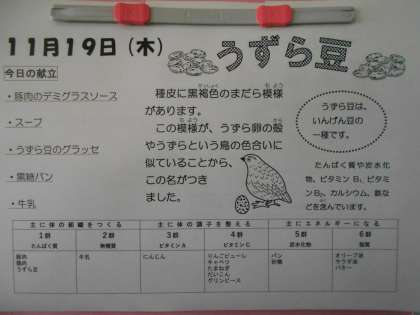 11月19日(木)
うずら豆
今日の献立
・豚肉のデミグラスソース
・スープ
・うずら豆のグラッセ
・黒糖パン
・牛乳
種皮に黒褐色のまだら模様
があります。
この模様が、うずら卵の殻
やうずらという鳥の色合いに
似ていることから、
この名がつき
ました。
うずら豆は、
いんげん豆の
一種です。
たんぱく質や炭水化
物、ビタミンB₁、ビタミ
ンB₂、カルシウム、鉄な
どを含んでいます。
主に体の組織をつくる 主に体の調子を整える 主にエネルギーになる
1群 2群 3群 4群 5群 6群
たんぱく質 無機質 ビタミンA ビタミンC 炭水化物 脂質
豚肉 牛乳 にんじん りんごピューレ パン オリーブ油
鶏肉 キャベツ 砂糖 サラダ油
うずら豆 たまねぎ バター
だいこん
グリンピース